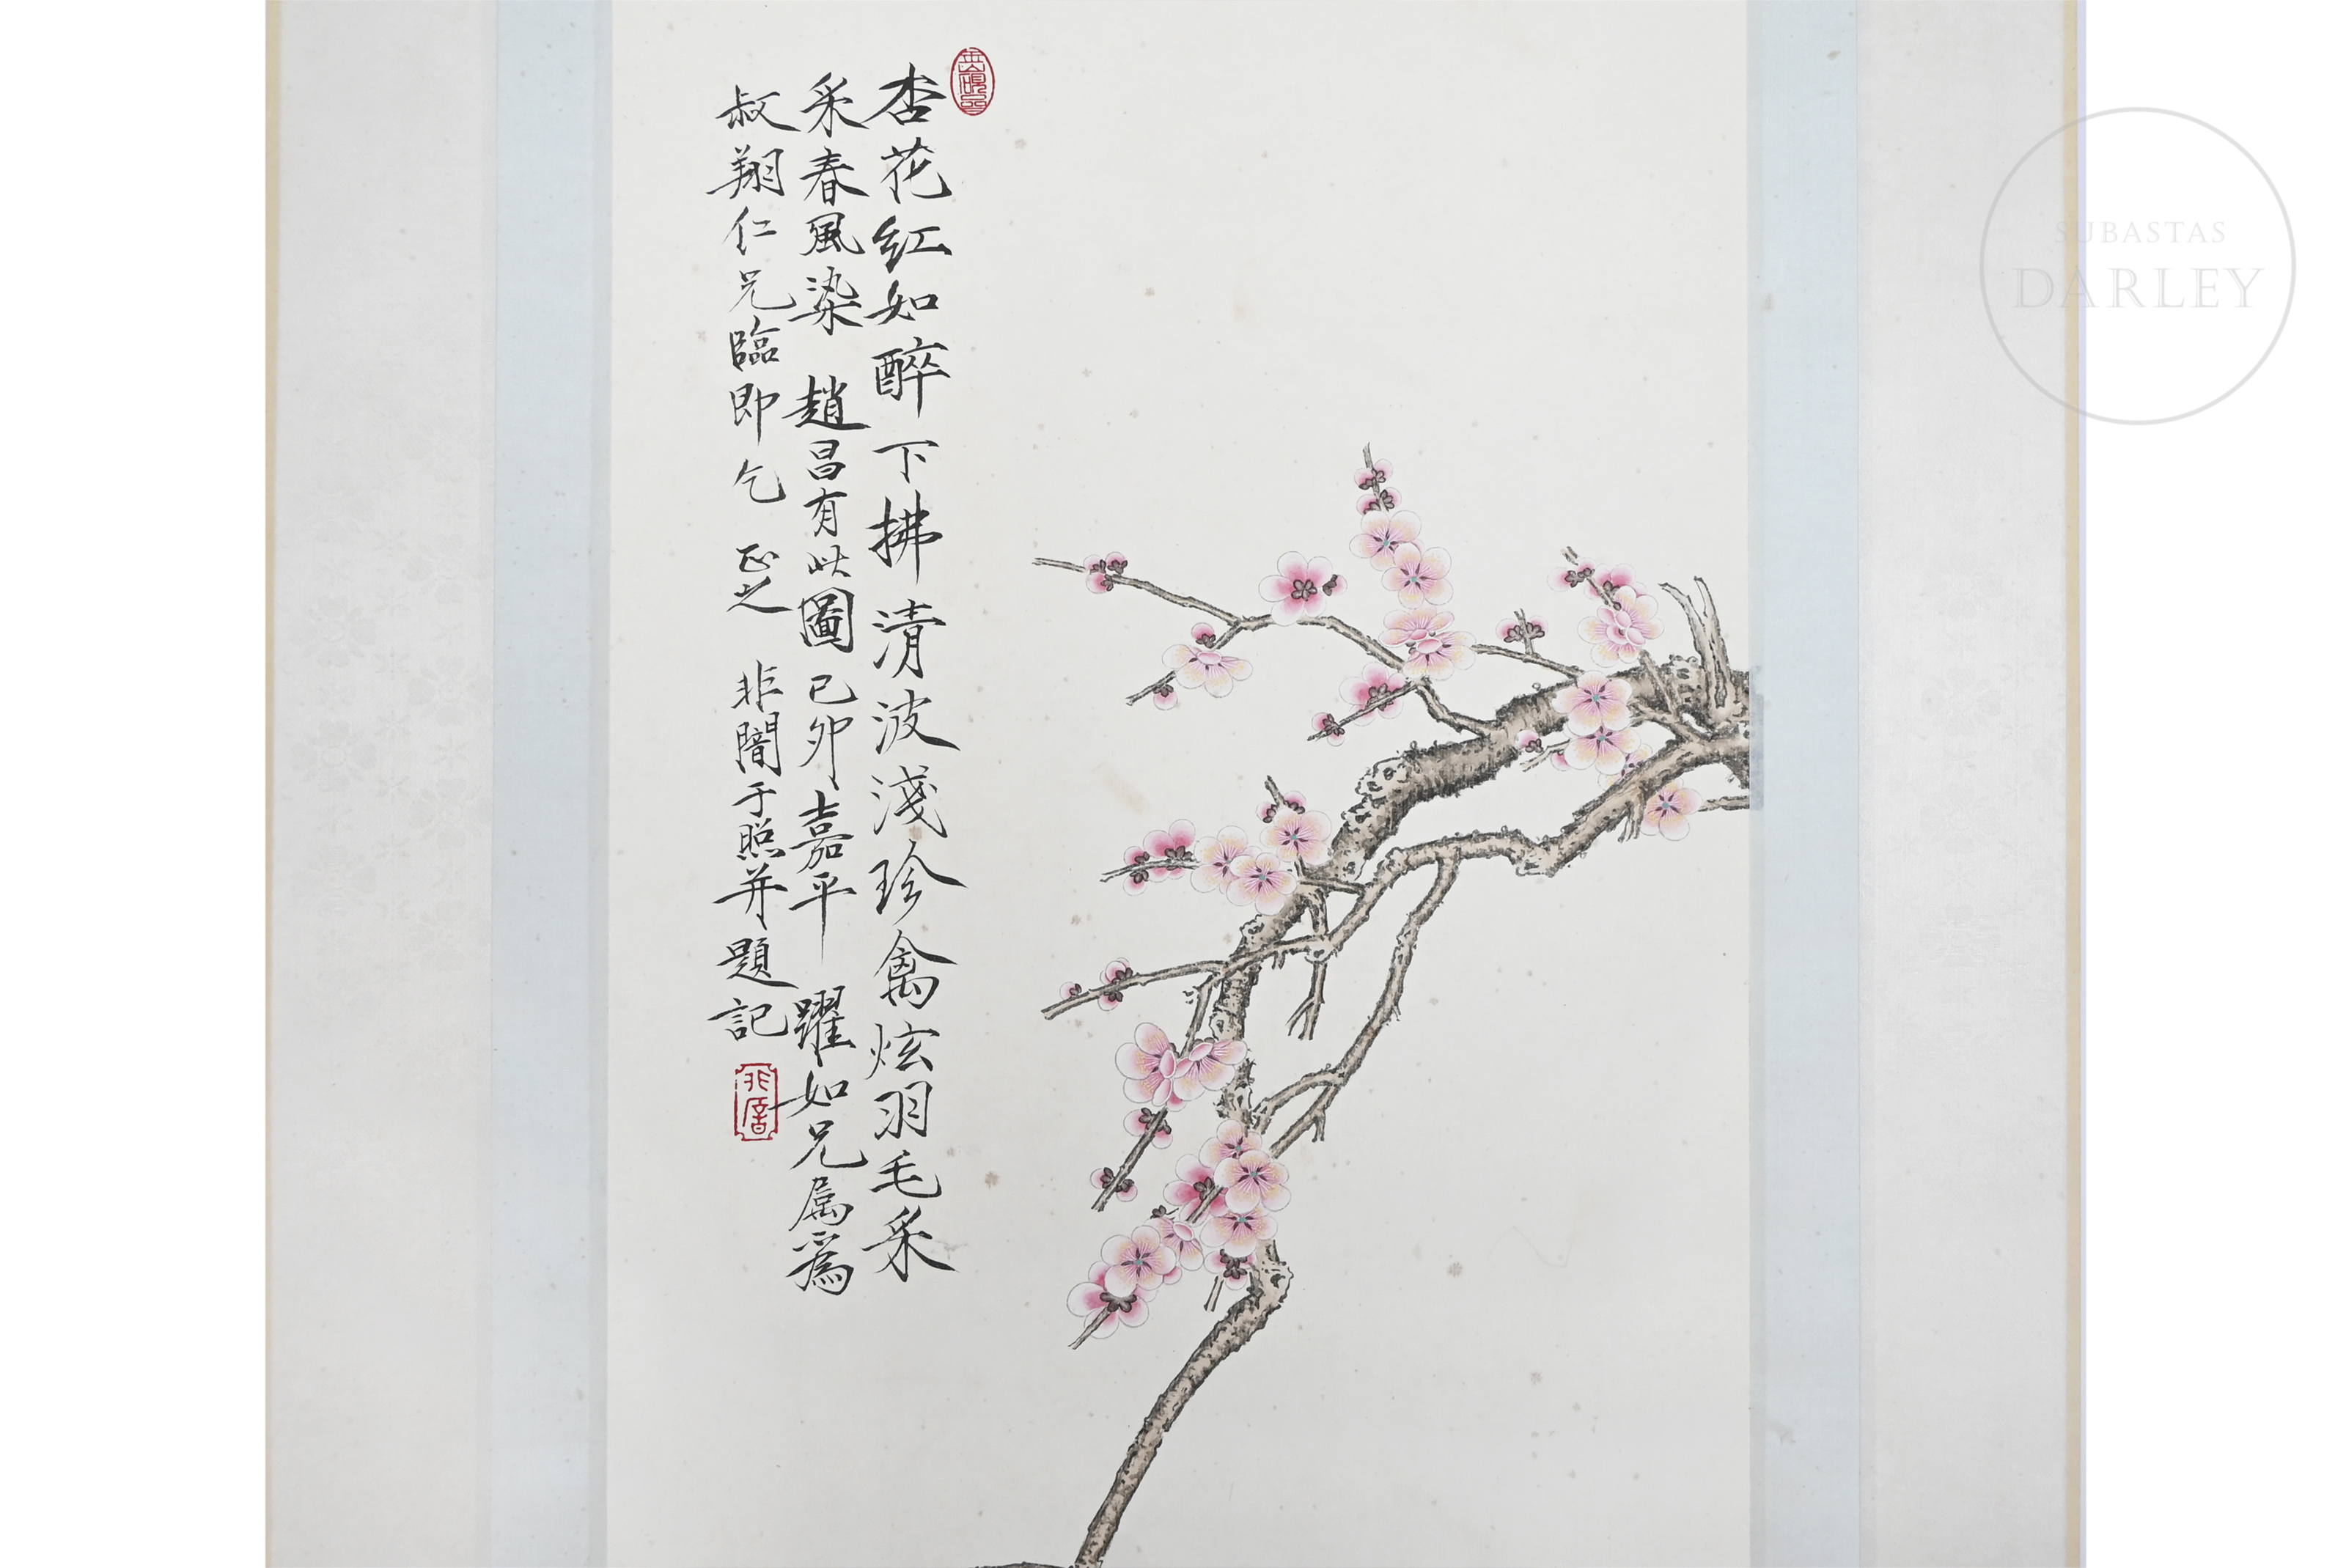 杏花紅如醉下拂清波淺珍禽炫羽毛采
采春風染 趙昌有此圖己卯嘉平 躍如兄属爲
叔翔仁兄臨即乞 正之 非闇于照并題記
非闇
SUBASTAS
DARLEY